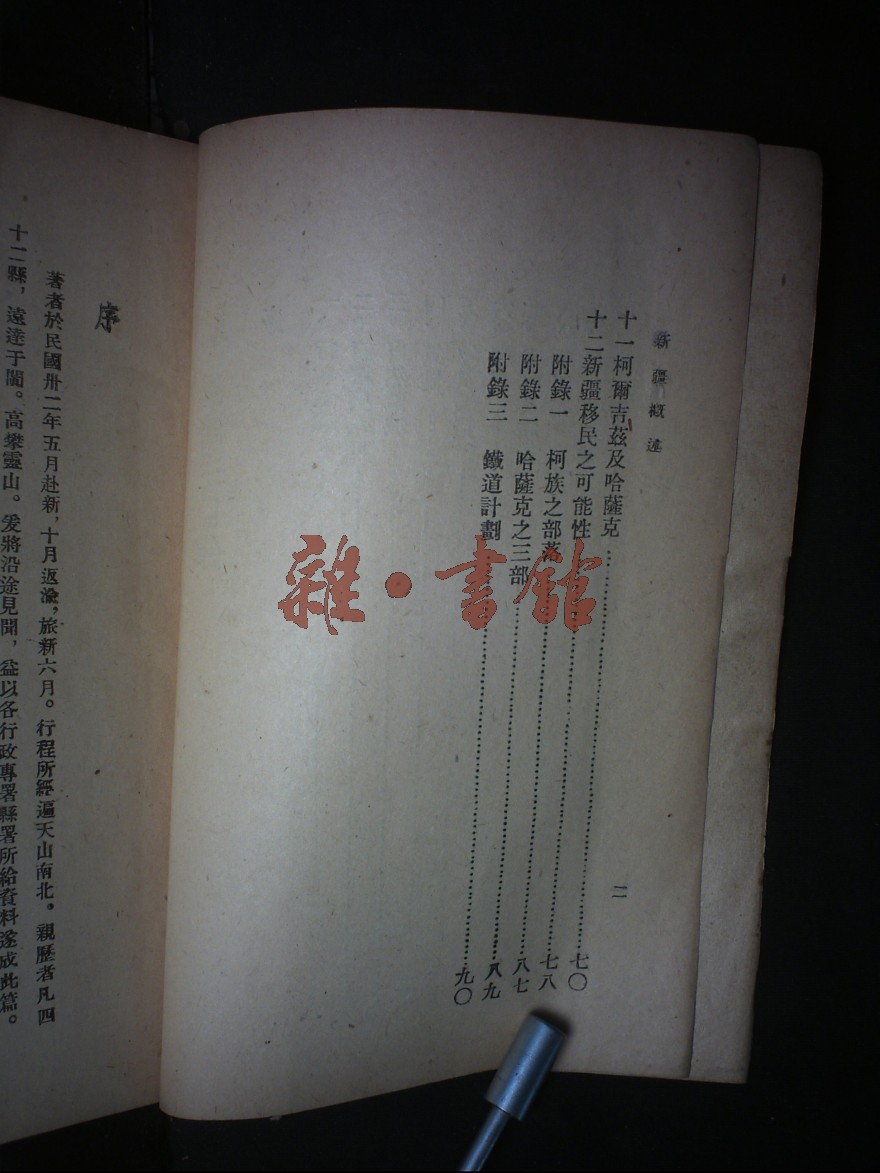 新疆概述
二
十一柯爾吉茲及哈薩克……七〇
十二新疆移民之可能性……七八
附錄一　柯族之部落……八七
附錄二　哈薩克之三部……八九
附錄三　鐵道計劃……九〇
序
著者於民國卅二年五月赴新，十月返渝，旅新六月。行程所經遍天山南北。親歷者凡四
十二縣，遠達于闐。高攀靈山。爰將沿途見聞，益以各行政專署縣署所給資料遂成此篇。
雜・書館